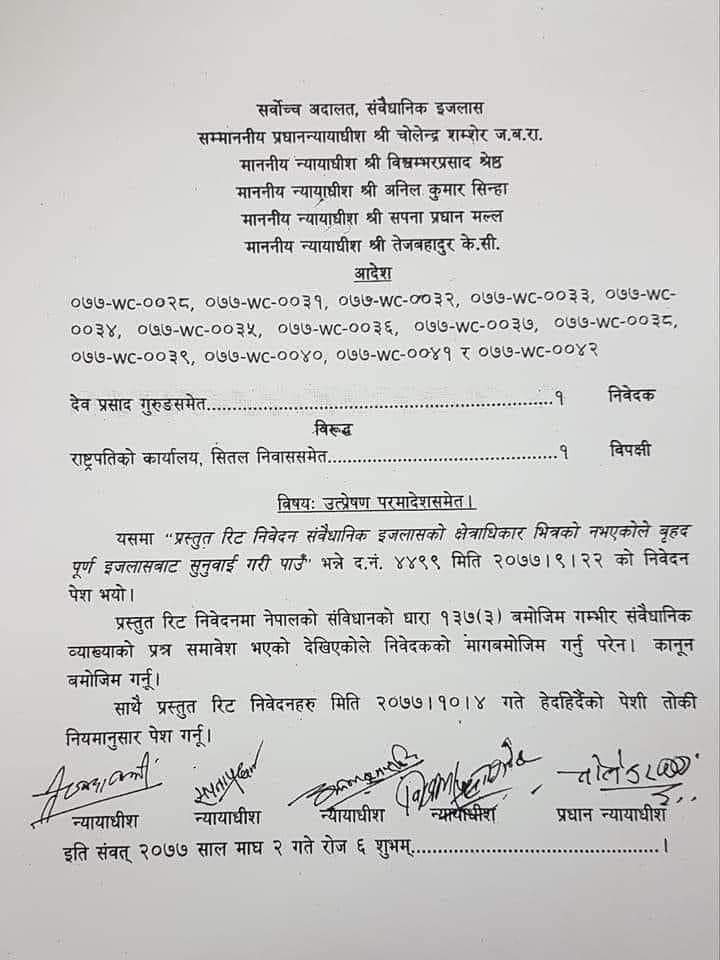 सर्वोच्च अदालत, संवैधानिक इजलास
सम्माननीय प्रधानन्यायाधीश श्री चोलेन्द्र शम्शेर ज.ब.रा.
माननीय न्यायाधीश श्री विश्वम्भरप्रसाद श्रेष्ठ
माननीय न्यायाधीश श्री अनिल कुमार सिन्हा
माननीय न्यायाधीश श्री सपना प्रधान मल्ल
माननीय न्यायाधीश श्री तेजबहादुर के.सी.
आदेश
०७७-WC-००२८, ०७७-WC-००३१, ०७७-WC-००३२, ०७७-WC-००३३, ०७७-WC-
००३४, ०७७-WC-००३५, ०७७-WC-००३६, ०७७-WC-००३७, ०७७-WC-००३८,
०७७-WC-००३९, ०७७-WC-००४०, ०७७-WC-००४१ र ०७७-WC-००४२
देव प्रसाद गुरुङसमेत......................................................१ निवेदक
विरूद्ध
राष्ट्रपतिको कार्यालय, सितल निवाससमेत....................................१ विपक्षी
विषयः उत्प्रेषण परमादेशसमेत।
यसमा "प्रस्तुत रिट निवेदन संवैधानिक इजलासको क्षेत्राधिकार भित्रको नभएकोले वृहद
पूर्ण इजलासबाट सुनुवाई गरी पाउँ" भन्ने द.नं. ४४९९ मिति २०७७।९।२२ को निवेदन
पेश भयो।
प्रस्तुत रिट निवेदनमा नेपालको संविधानको धारा १३७(३) बमोजिम गम्भीर संवैधानिक
व्याख्याको प्रश्न समावेश भएको देखिएकोले निवेदकको मागबमोजिम गर्नु परेन। कानून
बमोजिम गर्नू।
साथै प्रस्तुत रिट निवेदनहरु मिति २०७७।१०।४ गते हेर्दाहेर्दैको पेशी तोकी
नियमानुसार पेश गर्नू।
न्यायाधीश न्यायाधीश न्यायाधीश न्यायाधीश प्रधान न्यायाधीश
इति संवत् २०७७ साल माघ २ गते रोज ६ शुभम्..........................................।